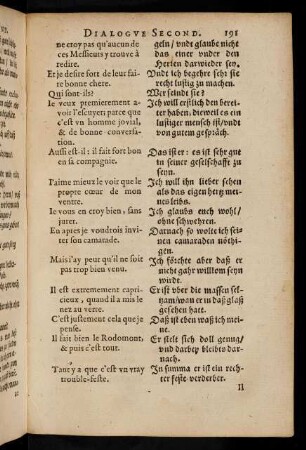 DIALOGVE SECOND. 191
ne croy pas qu'aucun de
ces Messieurs y trouve à
redire.
Et je desire fort de leur fai-
re bonne chere.
Qui sont-ils?
Ie veux premierement a-
voir l'escuyer parce que
c'est vn homme jovial,
& de bonne conversa-
tion.
Aussi est-il: il fait fort bon
en sa compagnie.
I'aime mieux le voir que le
propre cœur de mon
ventre.
Ie vous en croy bien, sans
jurer.
En apres je voudrois invi-
ter son camarade.
Mais i'ay peur qu'il ne soit
pas trop bien venu.
Il est extremement capri-
cieux, quand il a mis le
nez au verre.
C'est justement cela que je
pense.
Il fait bien le Rodomont,
& puis c'est tout.
Tant y a que c'est vn vray
trouble-feste.
geln / vnde glaube nicht
das einer vnder den
Herren darwieder sey.
Vnde ich begehre sehr sie
recht lustig zu machen.
Wer seindt sie?
Ich will erstlich den berei-
ter haben, dieweil es ein
lustiger mensch ist/vnde
von gutem gespräch.
Das ist er: es ist sehr gut
in seiner geselschafft zu
seyn.
Ich will ihn lieber sehen
als das eigen hertz mei-
nes leibs.
Ich glaubs euch wohl/
ohne schwehren.
Darnach so wolte ich sei-
nen camaraden nöthi-
gen.
Ich förchte aber daß er
nicht gahr willkom seyn
würde.
Er ist vber die massen sel-
tzam/wan er in daß glaß
gesehen hatt.
Daß ist eben waß ich mei-
ne.
Er stelt sich doll genug/
vnd darbey bleibts dar-
nach.
In summa er ist ein rech-
ter feste-verderber.
II